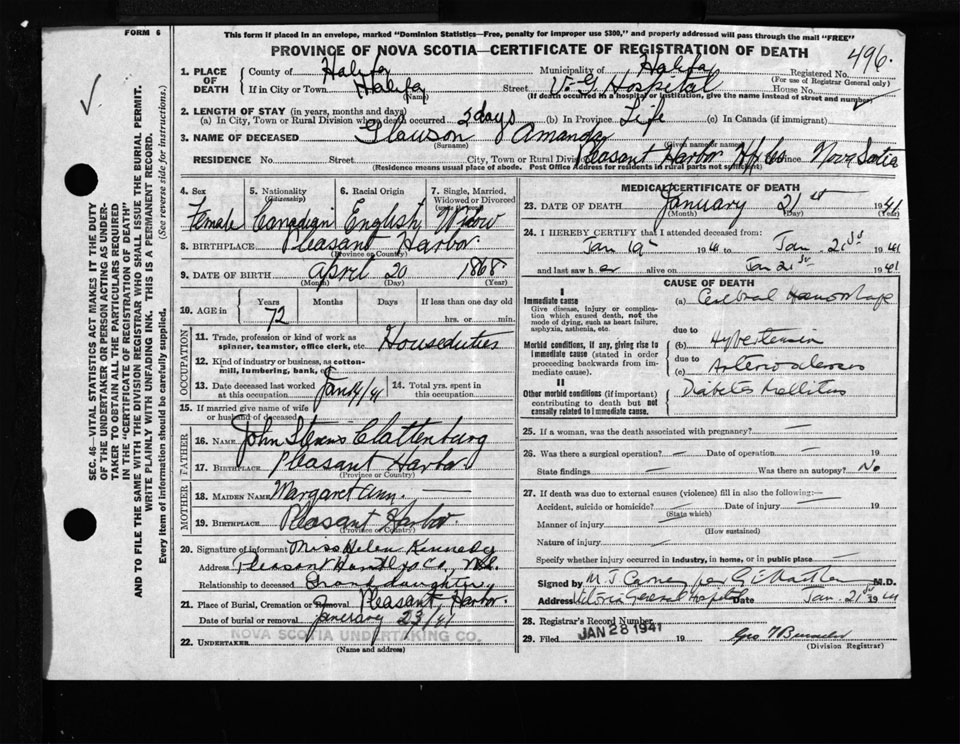 FORM 6
This form if placed in an envelope, marked "Dominion Statistics—Free, penalty for improper use $300," and properly addressed will pass through the mail "FREE"
PROVINCE OF NOVA SCOTIA—CERTIFICATE OF REGISTRATION OF DEATH
496.
1. PLACE OF DEATH
County of Halifax Municipality of Halifax Registered No.
(For use of Registrar General only)
If in City or Town Halifax Street V. G. Hospital House No.
(Name) (If death occurred in a hospital or institution, give name instead of street and number)
2. LENGTH OF STAY (in years, months and days)
(a) In City, Town or Rural Division where death occurred 3 days (b) In Province Life (c) In Canada (if immigrant)
3. NAME OF DECEASED Glawson Amanda
(Surname) (Given name or names)
RESIDENCE No. Street City, Town or Rural Division Pleasant Harbor Hfx Co Province Nova Scotia
(Residence means usual place of abode. Post Office Address for residents in rural parts not sufficient)
4. Sex Female
5. Nationality (Citizenship) Canadian
6. Racial Origin English
7. Single, Married, Widowed or Divorced Widow
8. BIRTHPLACE Pleasant Harbor.
(Province or Country)
9. DATE OF BIRTH April 20 1868
(Month) (Day) (Year)
10. AGE in Years Months Days If less than one day old
72 hrs. or min.
OCCUPATION
11. Trade, profession or kind of work as spinner, teamster, office clerk, etc. Houseduties
12. Kind of industry or business, as cotton-mill, lumbering, bank, etc.
13. Date deceased last worked at this occupation Jan 19/41
14. Total yrs. spent in this occupation
15. If married give name of wife or husband of deceased
FATHER
16. NAME John Stevens Clattenburg
17. BIRTHPLACE Pleasant Harbor
(Province or Country)
MOTHER
18. MAIDEN NAME Margaret Ann. —
19. BIRTHPLACE Pleasant Harbor.
(Province or Country)
20. Signature of informant Miss Helen Kennedy
Address Pleasant Co., N.S.
Relationship to deceased Grand daughter
21. Place of Burial, Cremation or Removal Pleasant Harbor.
Date of burial or removal January 23/41
22. UNDERTAKER NOVA SCOTIA UNDERTAKING CO.
(Name and address)
MEDICAL CERTIFICATE OF DEATH
23. DATE OF DEATH January 21st 1941
(Month) (Day) (Year)
24. I HEREBY CERTIFY that I attended deceased from:
Jan 19 1941 to Jan 21st 1941
and last saw her alive on Jan 21st 1941
CAUSE OF DEATH
I
Immediate cause
Give disease, injury or complication which caused death, not the mode of dying, such as heart failure, asphyxia, asthenia, etc.
(a) Cerebral Haemorrhage
due to
Morbid conditions, if any, giving rise to immediate cause (stated in order proceeding backwards from immediate cause).
(b) Hypertension
due to
(c) Arteriosclerosis
II
Other morbid conditions (if important) contributing to death but not causally related to immediate cause.
Diabetes Mellitus
25. If a woman, was the death associated with pregnancy? —
26. Was there a surgical operation? — Date of operation — 19
State findings — Was there an autopsy? No
27. If death was due to external causes (violence) fill in also the following:—
Accident, suicide or homicide? Date of injury 19
(State which)
Manner of injury
(How sustained)
Nature of injury
Specify whether injury occurred in industry, in home, or in public place
Signed by M.D.
Address Victoria General Hospital Date Jan. 21st 1941
28. Registrar's Record Number
29. Filed JAN 28 1941 19
(Division Registrar)
SEC. 46—VITAL STATISTICS ACT MAKES IT THE DUTY
OF THE UNDERTAKER OR PERSON ACTING AS UNDER-
TAKER TO OBTAIN ALL THE PARTICULARS REQUIRED
IN THE "CERTIFICATE OF REGISTRATION OF DEATH"
AND TO FILE THE SAME WITH THE DIVISION REGISTRAR WHO SHALL ISSUE THE BURIAL PERMIT.
WRITE PLAINLY WITH UNFADING INK. THIS IS A PERMANENT RECORD.
Every item of information should be carefully supplied. (See reverse side for instructions.)